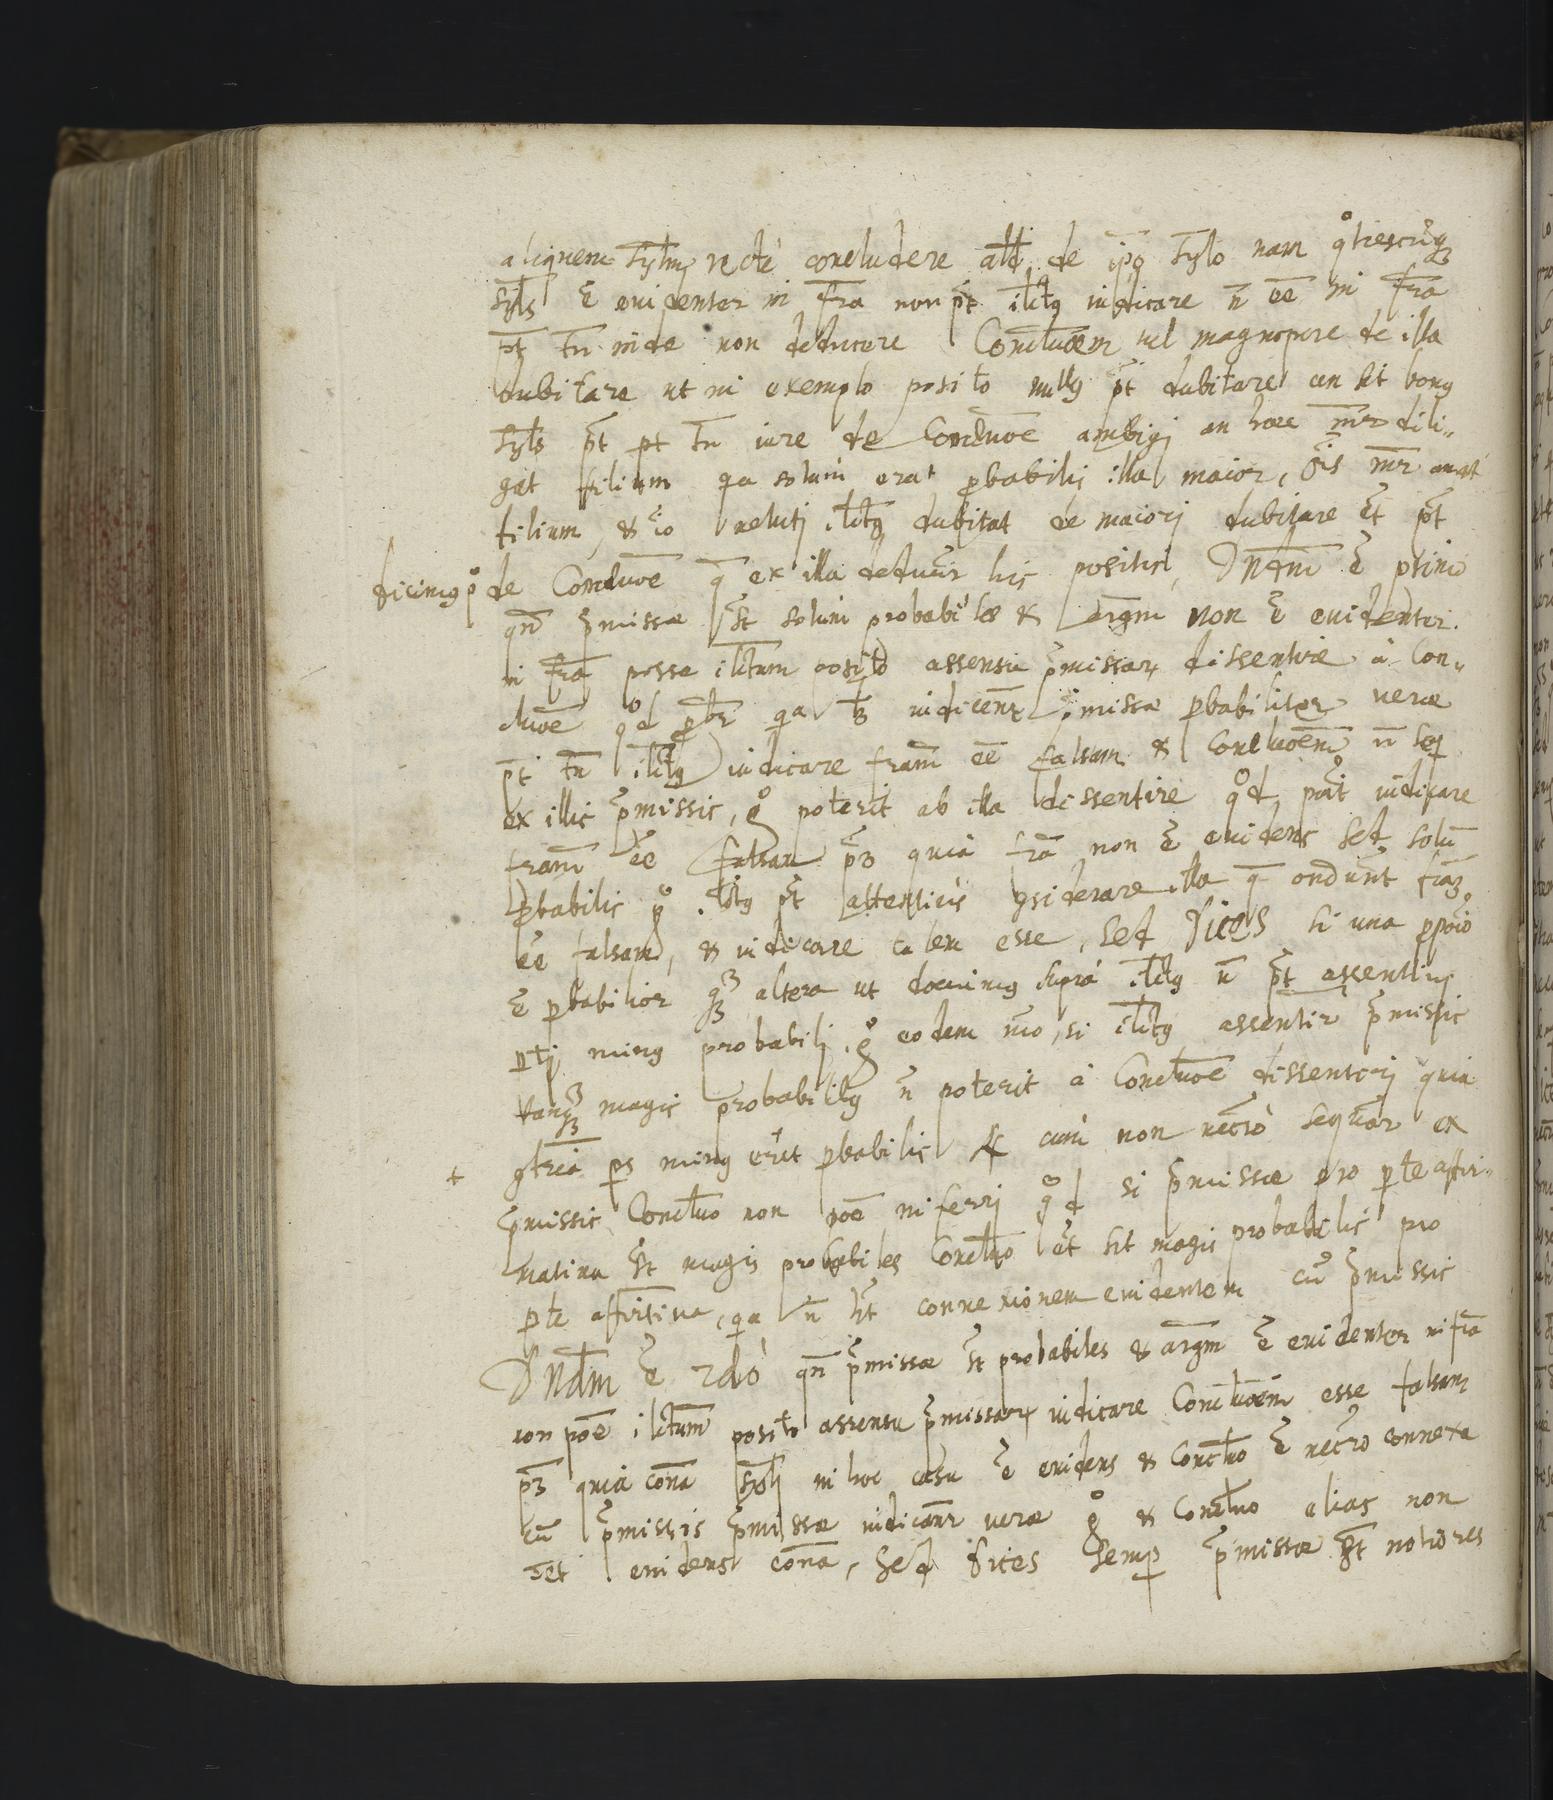 aliquem syllm recte concludere alld de ipo syllo nam qotiescuq
sylls ē euidenter in fra non pt iltus iudicare n ee in fra
pt tn inde non deducere Concluoem uel magnopere de illa
dubitare ut in exemplo posito nullus pt dubitare an sit bonus
sylls pt tn iure de Concluoe ambigi an haec mr dili-
gat filium qa solum erat pbabilis illa maior, ois mr amat
filium, & io ueluti iltus dubitat de maiori dubitare et pt
dicimus de Concluoe q ex illa deducitr his positis, Dndm ē primo
qn pmissae st solum probabiles & argm non ē euidenter
in fra posse iltum posito assensu pmissar dissentire a Con-
cluoe qd pbr qa iudicentr pmissae pbabiliter uerae
pt tn iltus iudicare fram ee falsam & concluoem n seq
ex illis pmissis, go poterit ab illa dissentire qd poit iudicare
fram ee falsam pz quia fra non ē euidens sed solu
pbabilis go iltus pt attentius considerare illa q ondunt fram
ee falsam, & iudicare talem esse, Sed Dices si una ppoio
ē pbabilior q altera ut docuimus supra iltus n pt assentiri
pti minus probabili go eodem mo, si iltus assentir pmissis
tanq magis probabilibus n poterit a Concluoe dissentiri quia
contria ps minus erit pbabilis & cum non necrio sequar ex
pmissis Concluo non poe inferri qd si pmissae pro pte affir-
matiua st magis probabiles Concluo et sit magis probabilis pro
pte affirtiua, qa n ht connexionem euidentem cu pmissis
Dndm ē 2do qn pmissae st probabiles & argm ē euidenter in fra
non poe iltum posito assensu pmissar iudicare Concluoem esse falsam
pz quia cona sylli in hoc casu ē euidens & Concluo ē necrio connexa
cu pmissis pmissae iudicantr uerae go & Concluo alias non
eet euidens cona, Sed Dices semp pmissae st notiores